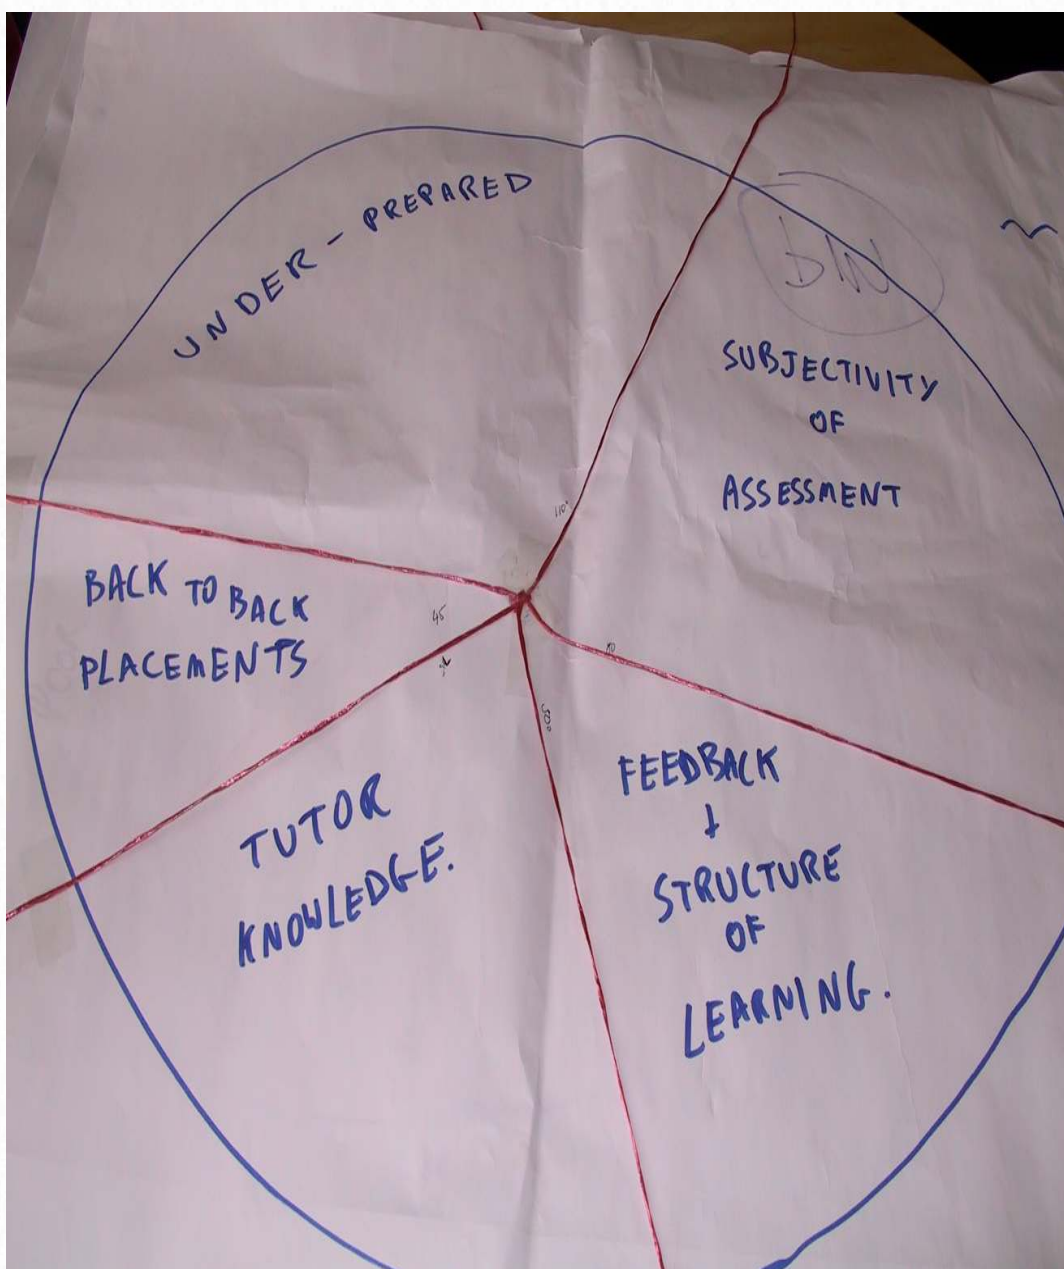 UNDER - PREPARED
SUBJECTIVITY
OF
ASSESSMENT
110°
BACK TO BACK
PLACEMENTS
45
TUTOR
KNOWLEDGE.
FEEDBACK
+
STRUCTURE
OF
LEARNING.